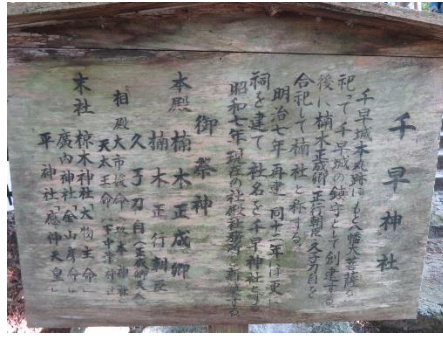 千早神社
千早城本丸跡にもと八幡大菩薩を
祀って千早城の鎮守として創建する
後に楠木正成卿正行朝臣久子刀自を
合祀して楠社と称する
明治七年再建 同十二年は更に
祠を建て社名を千早神社とす
昭和七年現在の社殿社務所新
御祭神
本殿 楠木正成卿
楠木正行朝臣
久子刀自
相殿
末社 椋木神社 大物主命
平神社 應神天皇